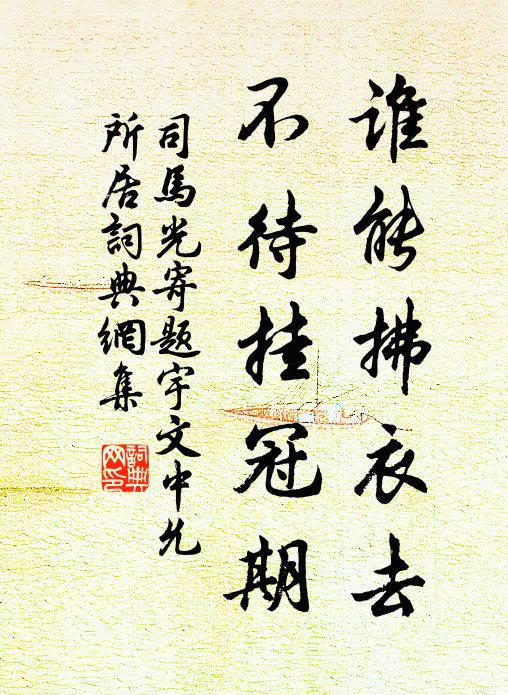 谁能拂衣去
不待挂冠期
司馬光寄题宇文中允
所居詞典網集
詞典网印